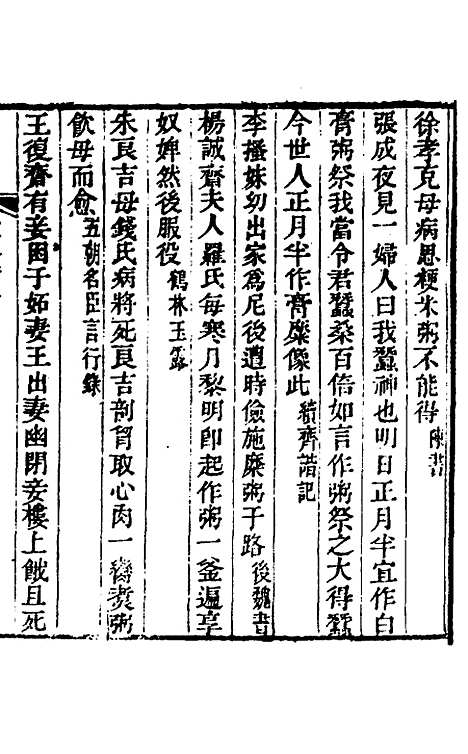 徐孝克母病思粳米粥不能得陳書
張成夜見一婦人曰我蠶神也明日正月半宜作白
膏粥祭我當令君蠶桑百倍如言作粥祭之大得蠶
今世人正月半作膏糜像此續齊諧記
李搔妹幼出家為尼後遭時儉施糜粥于路後魏書
楊誠齋夫人羅氏每寒月黎明即起作粥一釜遍享
奴婢然後服役鶴林玉露
朱良吉母錢氏病將死良吉剖胷取心肉一臠煑粥
飲母而愈五朝名臣言行錄
王復齋有妾因子妬妻王出妻幽閉妾樓上餓且死